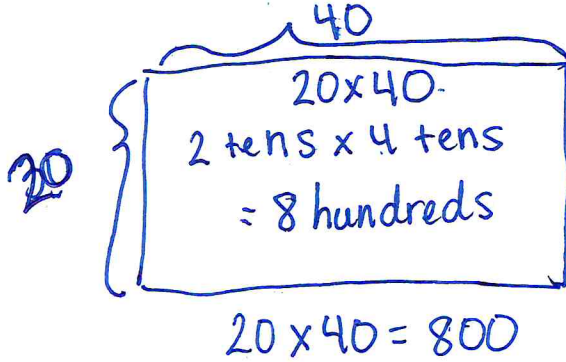 40
20×40.
20
2 tens × 4 tens
= 8 hundreds
20 × 40 = 800